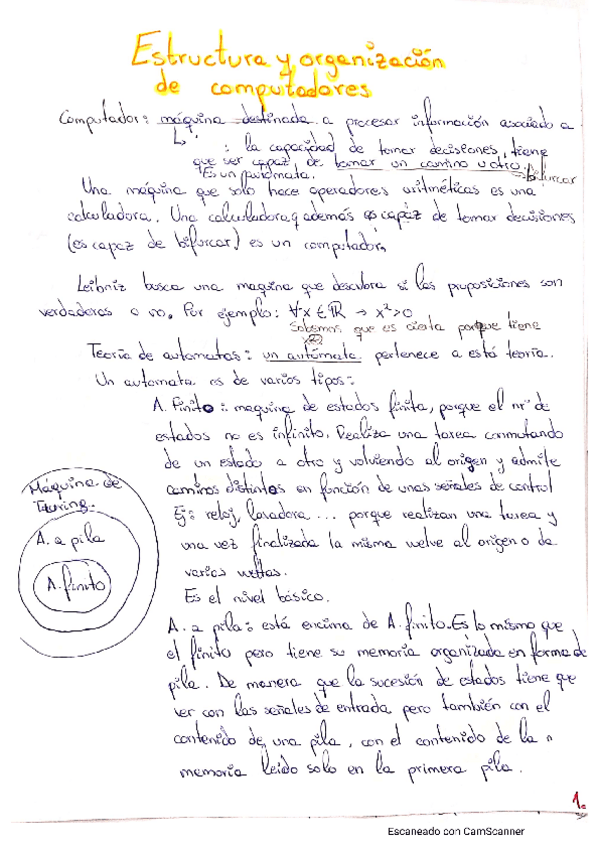 Estructura y organización
de computadores
Computador: máquina destinada a procesar información asociado a
: la capacidad de tomar decisiones, tiene
que ser capaz de tomar un camino u otro. bifurcar
Es un autómata.
Una máquina que solo hace operadores aritméticas es una
calculadora. Una calculadora q además es capaz de tomar decisiones
(es capaz de bifurcar) es un computador.
Leibniz busca una maquina que descubra si las proposiciones son
verdaderas o no. Por ejemplo: ∀x ∈ ℝ → x²>0
Sabemos que es cierta porque tiene
Teoría de automatas: un autómata pertenece a está teoría.
Un automata es de varios tipos:
A. Finito: maquina de estados finita, porque el nr de
estados no es infinito. Realiza una tarea conmutando
de un estado a otro y volviendo al origen y admite
caminos distintos en función de unas señales de control
Ej: reloj, lavadora ... porque realizan una tarea y
una vez finalizada la misma vuelve al origen o da
varias vueltas.
Es el nivel básico.
Máquina de
Tauring.
A. a pila
A. finito
A. a pila: está encima de A. finito. Es lo mismo que
el finito pero tiene su memoria organizada en forma de
pila. De manera que la sucesión de estados tiene que
ver con las señales de entrada pero también con el
contenido de una pila, con el contenido de la
memoria leido solo en la primera pila.
1.
Escaneado con CamScanner